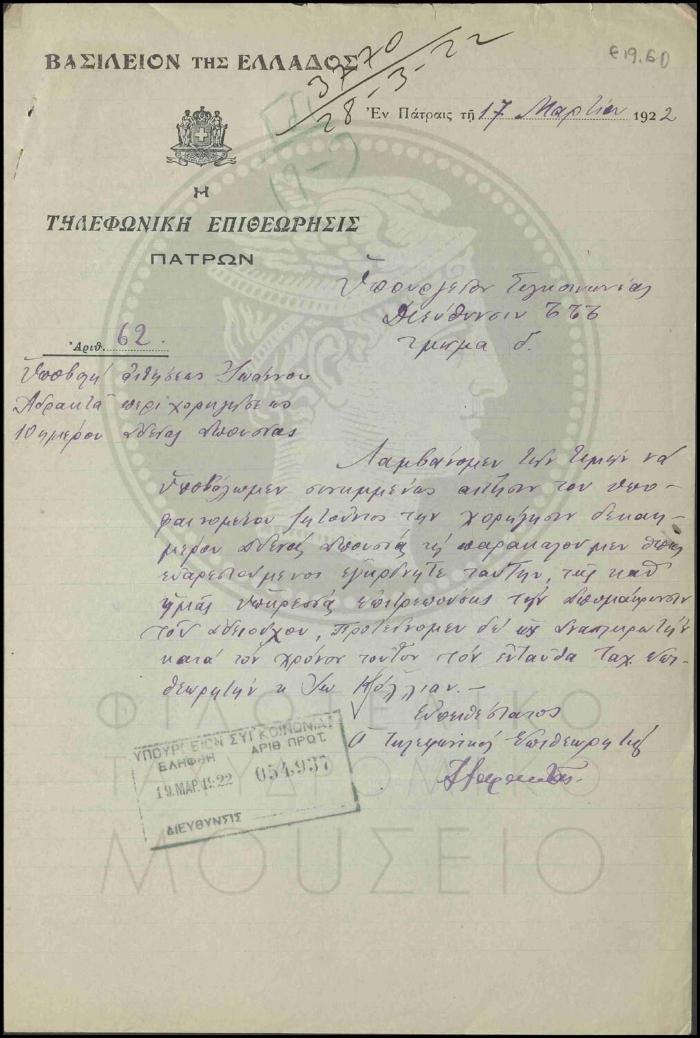 ΒΑΣΙΛΕΙΟΝ ΤΗΣ ΕΛΛΑΔΟΣ
3770
28-3-22
€19.60
Ἐν Πάτραις τῇ 17 Μαρτίου 1922
Η
ΤΗΛΕΦΩΝΙΚΗ ΕΠΙΘΕΩΡΗΣΙΣ
ΠΑΤΡΩΝ
Ὑπουργεῖον Συγκοινωνίας
Διεύθυνσιν ΤΤΤ
τμῆμα δ.
Ἀριθ. 62.
Ὑποβολή αἰτήσεως Ἰωάννου
περί χορηγήσεως
10ημέρου ἀδείας ἀπουσίας
Λαμβάνομεν τήν τιμήν νά
ὑποβάλωμεν συνημμένως αἴτησιν τοῦ ὑπο-
φαινομένου ζητοῦντος τήν χορήγησιν δεκαη-
μέρου ἀδείας ἀπουσίας παρακαλοῦμεν ὅπως
εὐαρεστούμενος ἐγκρίνητε ταύτην, τῆς καθ
ἡμᾶς ὑπηρεσίας ἐπιτρεπούσης τήν ἀπομάκρυνσιν
τοῦ ἀδειούχου, προτείνομεν δέ ὡς ἀναπληρωτήν
κατά τόν χρόνον τοῦτον τόν ἐνταῦθα ταχ. ἐπι-
θεωρητήν κ Ἰω
Εὐπειθέστατος
Ὁ τηλεφωνικός ἐπιθεωρητής
ΥΠΟΥΡΓΕΙΟΝ ΣΥΓΚΟΙΝΩΝΙΑΣ
ΕΛΗΦΘΗ ΑΡΙΘ ΠΡΩΤ.
19.ΜΑΡ.1922 054937
ΔΙΕΥΘΥΝΣΙΣ
ΦΙΛΟΤΕΛΙΚΟ
ΤΑΧΥΔΡΟΜΙΚΟ
ΜΟΥΣΕΙΟ